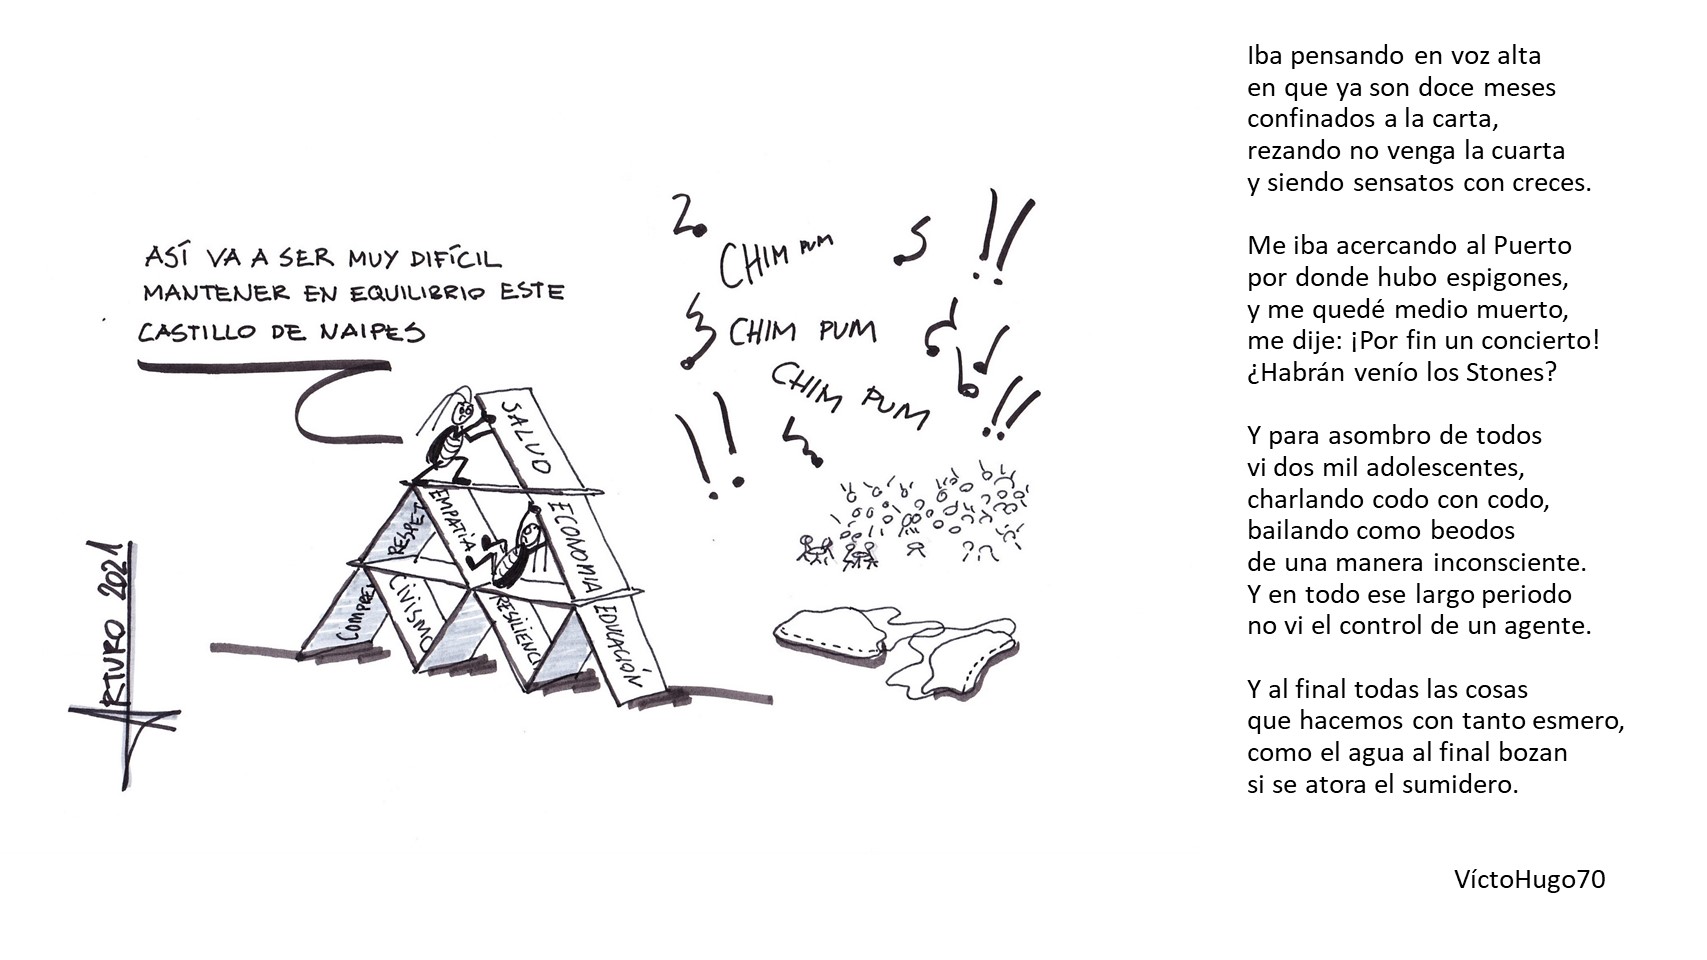 ASÍ VA A SER MUY DIFÍCIL
MANTENER EN EQUILIBRIO ESTE
CASTILLO DE NAIPES
CHIM PUM
CHIM PUM
CHIM PUM
SALUD
RESPET
EMPATIA
ECONOMIA
COMPRE
CIVISMO
RESILIENCI
EDUCACIÓN
RTURO 2021
Iba pensando en voz alta
en que ya son doce meses
confinados a la carta,
rezando no venga la cuarta
y siendo sensatos con creces.
Me iba acercando al Puerto
por donde hubo espigones,
y me quedé medio muerto,
me dije: ¡Por fin un concierto!
¿Habrán venío los Stones?
Y para asombro de todos
vi dos mil adolescentes,
charlando codo con codo,
bailando como beodos
de una manera inconsciente.
Y en todo ese largo periodo
no vi el control de un agente.
Y al final todas las cosas
que hacemos con tanto esmero,
como el agua al final bozan
si se atora el sumidero.
VíctoHugo70